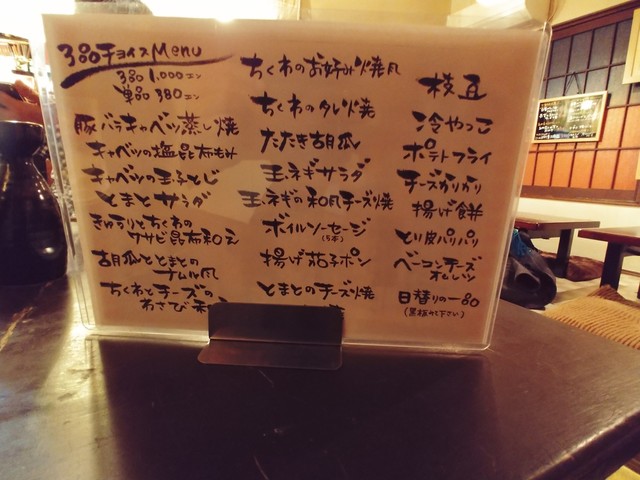 3品チョイスMenu
3品 1,000エン
単品 380エン
豚バラキャベツ蒸し焼
キャベツの塩昆布もみ
キャベツの玉子とじ
とまとサラダ
きゅうりとちくわの
ワサビ昆布和え
胡瓜ととまとの
ナムル風
ちくわとチーズの
わさび和え
ちくわのお好み焼風
ちくわのタレ焼
たたき胡瓜
玉ネギサラダ
玉ネギの和風チーズ焼
ボイルソーセージ
(5本)
揚げ茄子ポン
とまとのチーズ焼
枝豆
冷やっこ
ポテトフライ
チーズかりかり
揚げ餅
とり皮パリパリ
ベーコンチーズ
オムレツ
日替りの一品
(黒板から下さい)